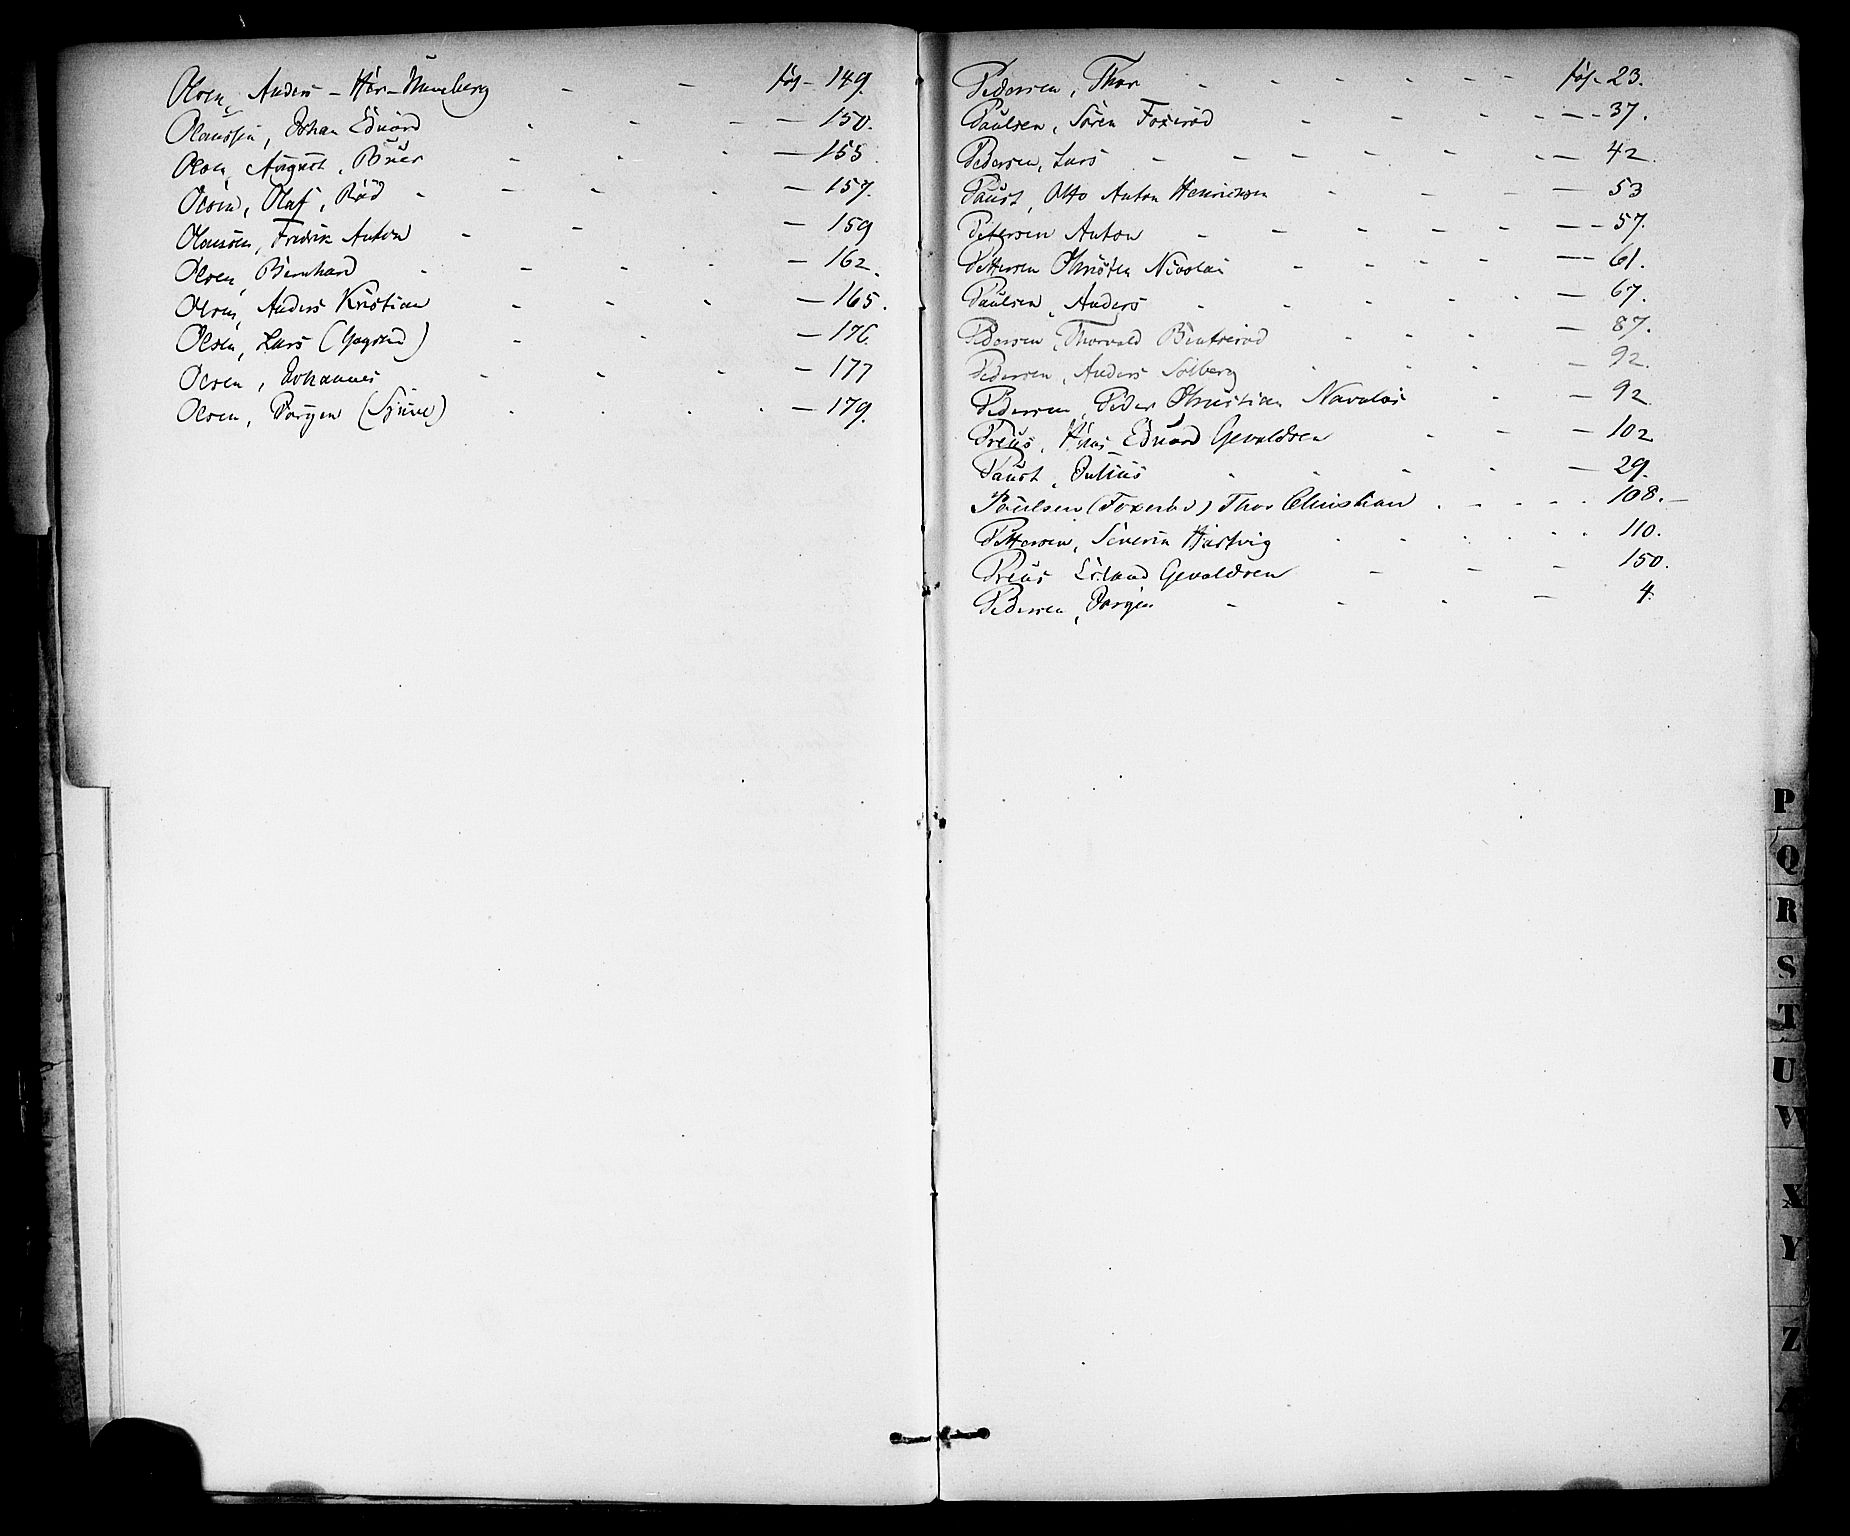 Olsen, Anders - Hør- - - fol - 149.
Olaussen, Johan Edvard - - - - 150.
Olsen, August, Buer - - - - 155
Olsen, Olaf, Rød - - - - - 157.
Olaussen, Fredrik Anton - - - 159
Olsen, Bernhard - - - - - 162.
Olsen, Anders Kristian - - - - 165.
Olsen, Lars - - - 176.
Olsen, Johannes - - - - 177
Olsen, Jørgen - - - - - 179.
Pedersen, Thor - - - - - - - fol - 23.
Paulsen, Søren Foxerød - - - - - - 37.
Pedersen, Lars - - - - - - - - 42.
Paust, Otto Anton Henriksen - - - - 53
Pettersen Anton - - - - - - - 57.
Pettersen Christen Nicolai - - - - - - 61.
Paulsen, Anders - - - - - - 67.
Pedersen, Thorvald - - - - 87.
Pedersen, Anders Solberg - - - - 92.
Pedersen, Peder Christian Nicolai - - 92
Preus, Edvard Gevaldsen - - - 102
Paust, Julius - - - - - 29.
Poulsen (Foxerød) Thor Christian . - - - . 108. -
Pettersen, Severin Hartvig - - - - . 110.
Preus Erland Gevaldsen - - - 150.
Pedersen, Jørgen - - - - 4.
P
Q
R
S
T
U
W
X
Y
Z